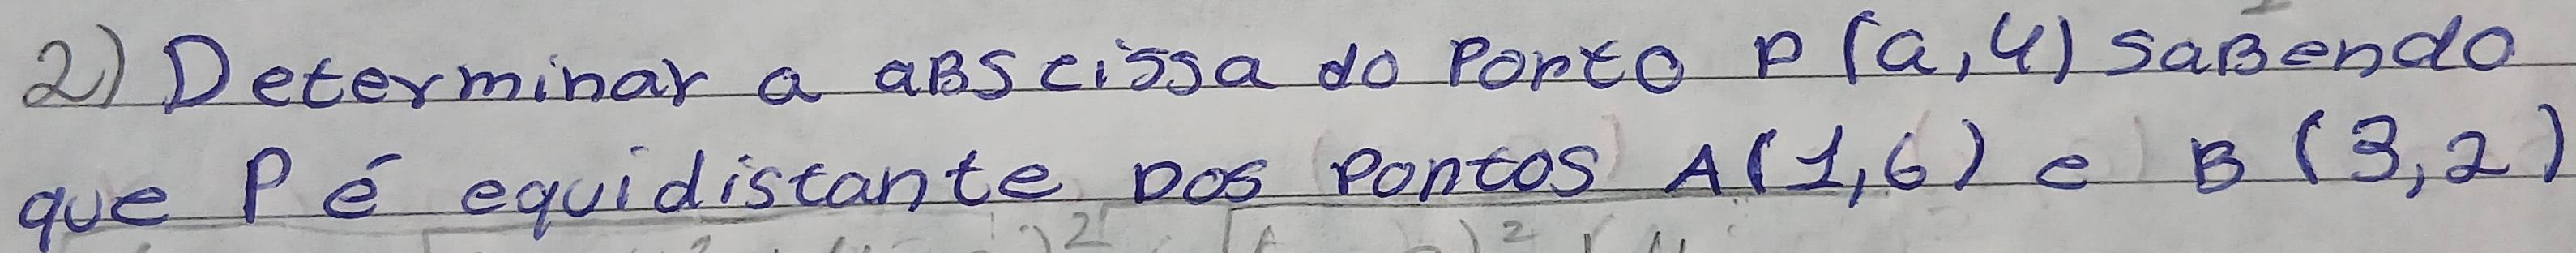 2) Determinar a aBscissa do Ponto P (a,4) saBendo
que P é equidistante Dos Pontos A(1,6) e B (3,2)